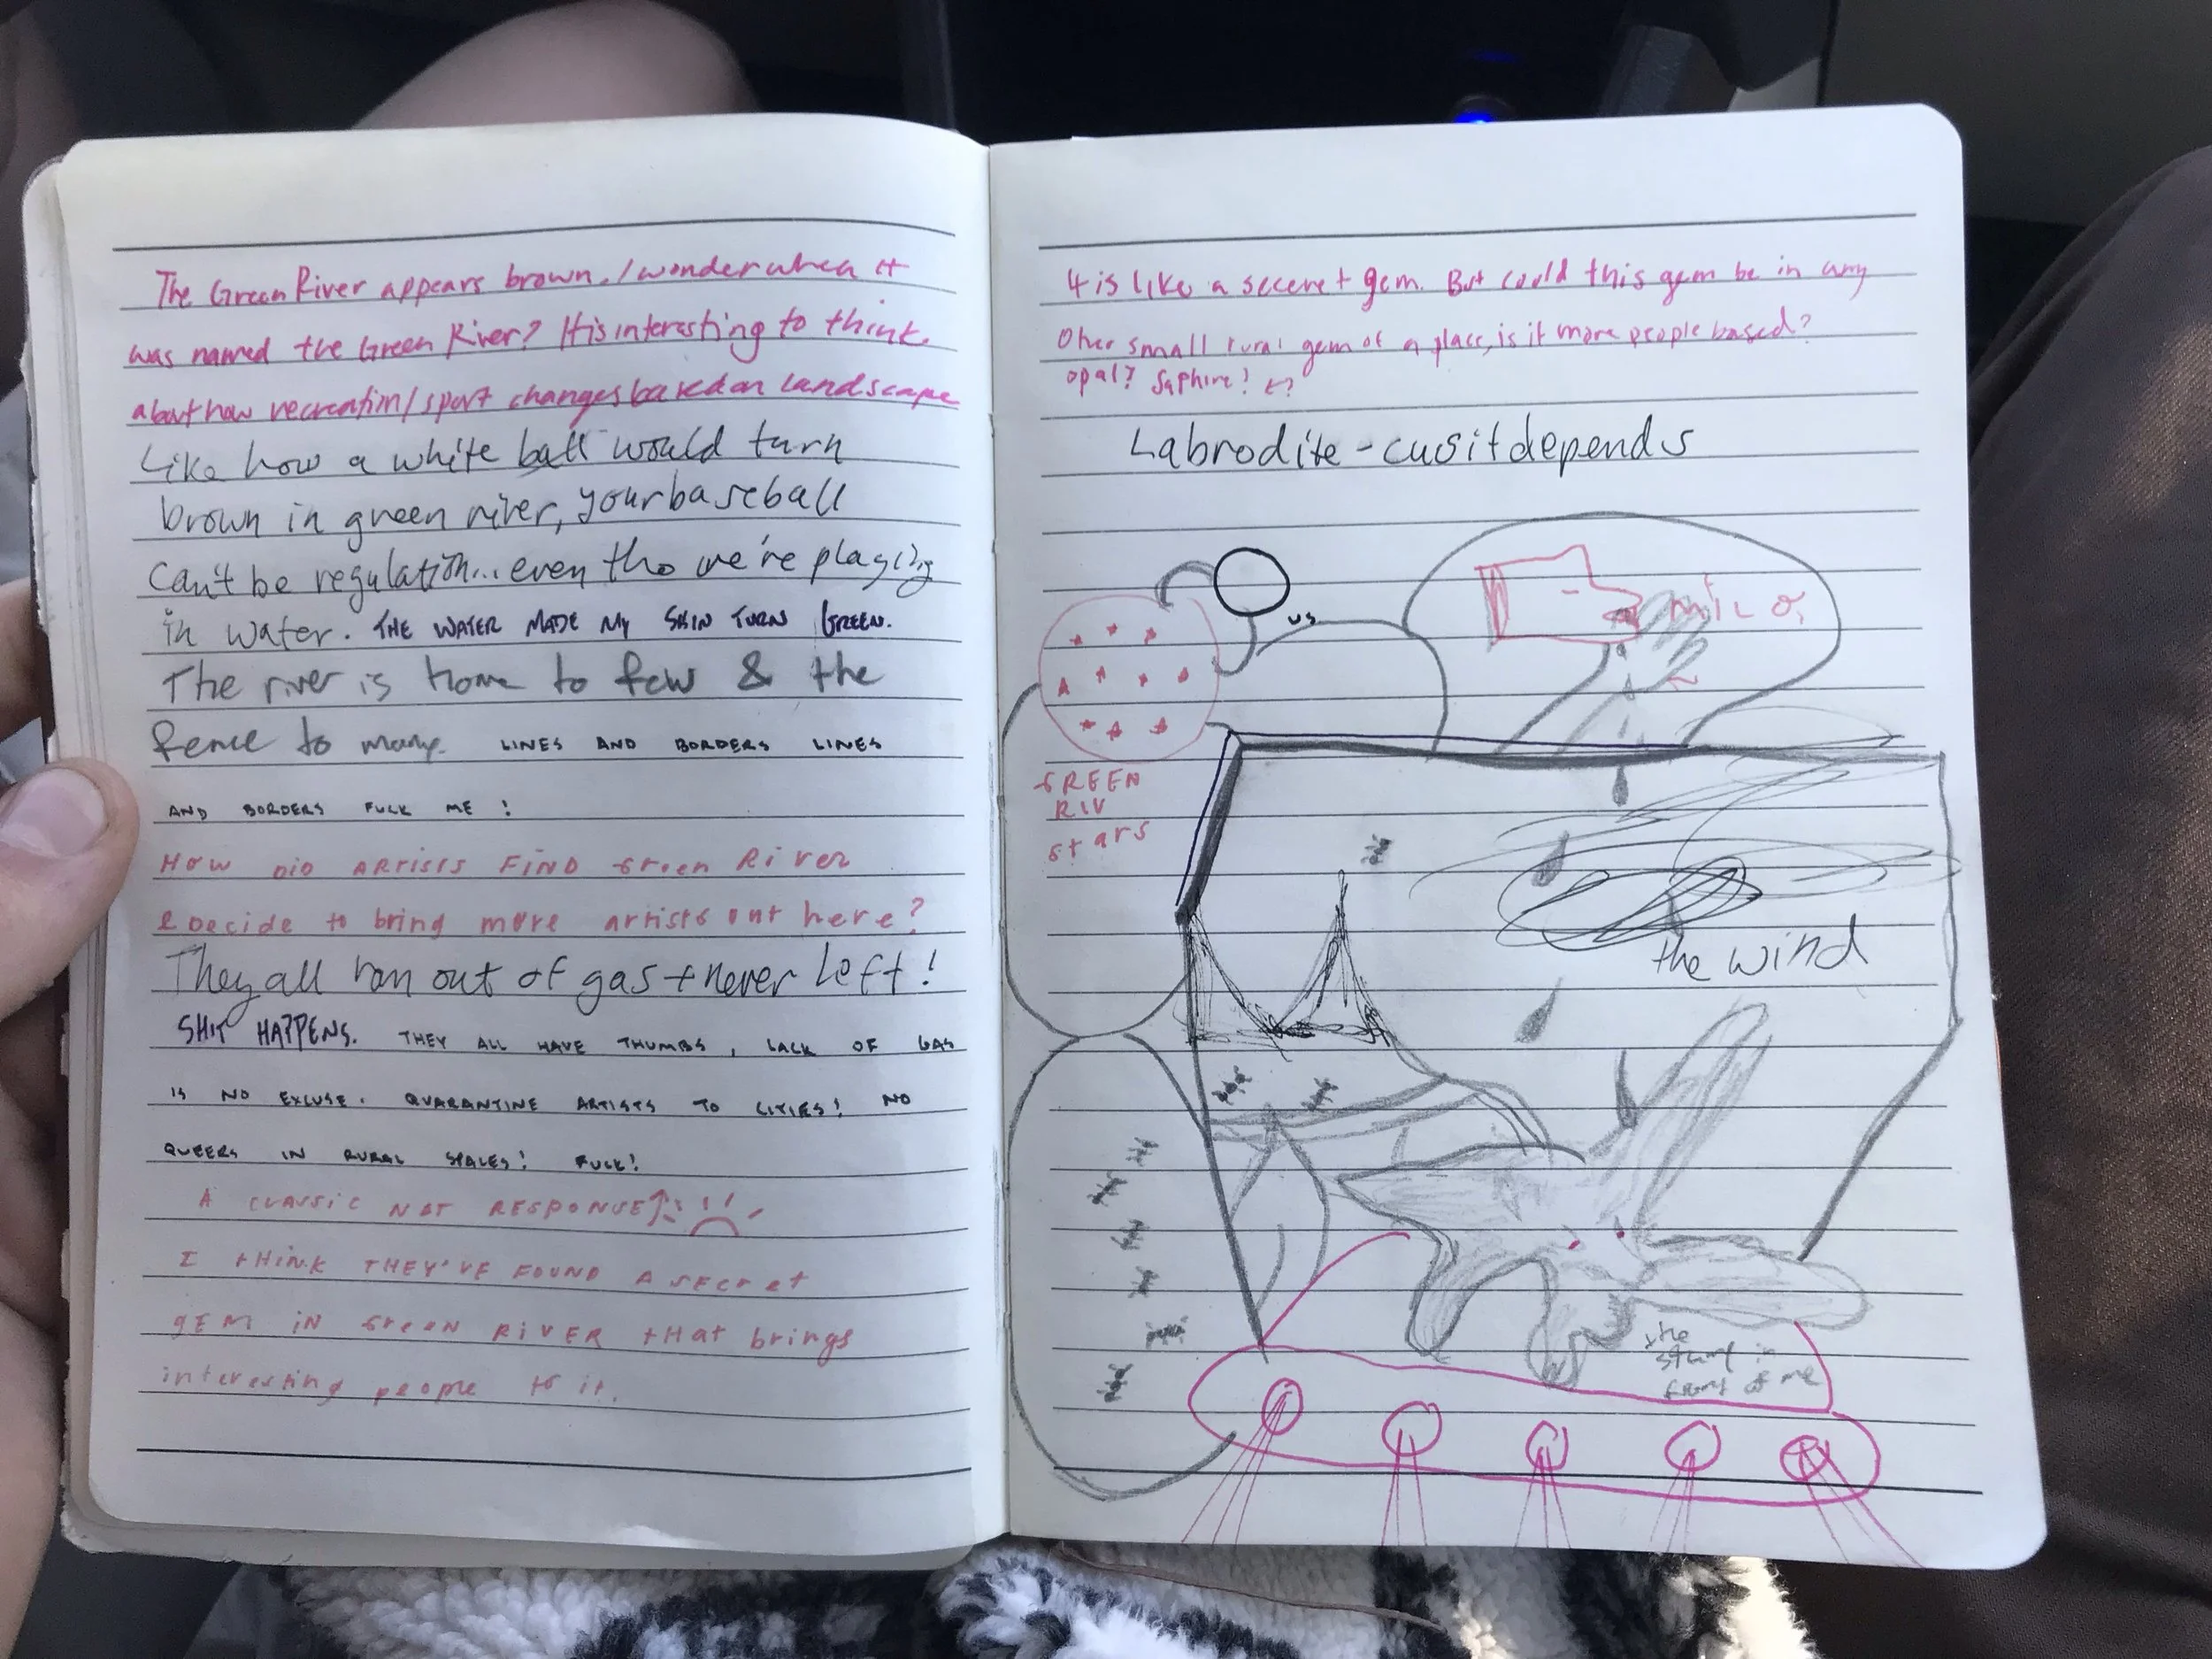 The Green River appears brown. I wonder when it
was named the Green River? It is interesting to think
about how recreation/sport changes based on landscape
Like how a white ball would turn
brown in green river, your baseball
can't be regulation... even tho we're playing
in water. THE WATER MADE MY SKIN TURN GREEN.
The river is home to few & the
fence to many. LINES AND BORDERS LINES
AND BORDERS FUCK ME !
HOW DID ARTISTS FIND Green River
& Decide to bring more artists out here?
They all ran out of gas + never left!
SHIT HAPPENS. THEY ALL HAVE THUMBS, LACK OF GAS
IS NO EXCUSE. QUARANTINE ARTISTS TO CITIES! NO
QUEERS IN RURAL SPACES! FUCK!
A CLASSIC NAT RESPONSE
I tHiNK THEY'VE FOUND A secret
gEM iN Green RiVER tHat brings
interesting people to it.
It is like a seceret gem. But could this gem be in any
Other small rural gem of a place, is it more people based?
opal? Saphire?
Labrodite - cusitdepends
us
milo
GREEN
RIV
stars
the wind
the
stump in
front of me